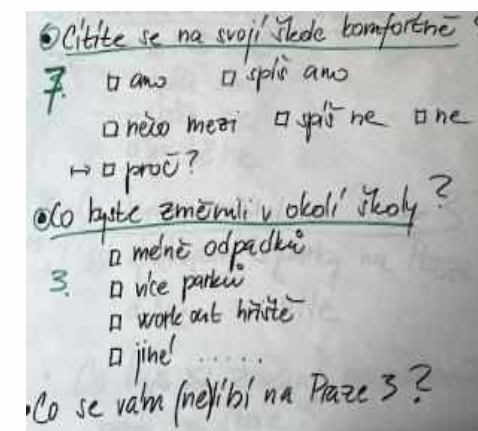 Cítíte se na svojí škole komfortně ?
7. □ ano □ spíš ano
□ něco mezi □ spíš ne □ ne
↦ □ proč?
Co byste změnili v okolí školy ?
□ méně odpadků
3. □ více parků
□ work out hřiště
□ jiné .....
Co se vám (ne)líbí na Praze 3 ?